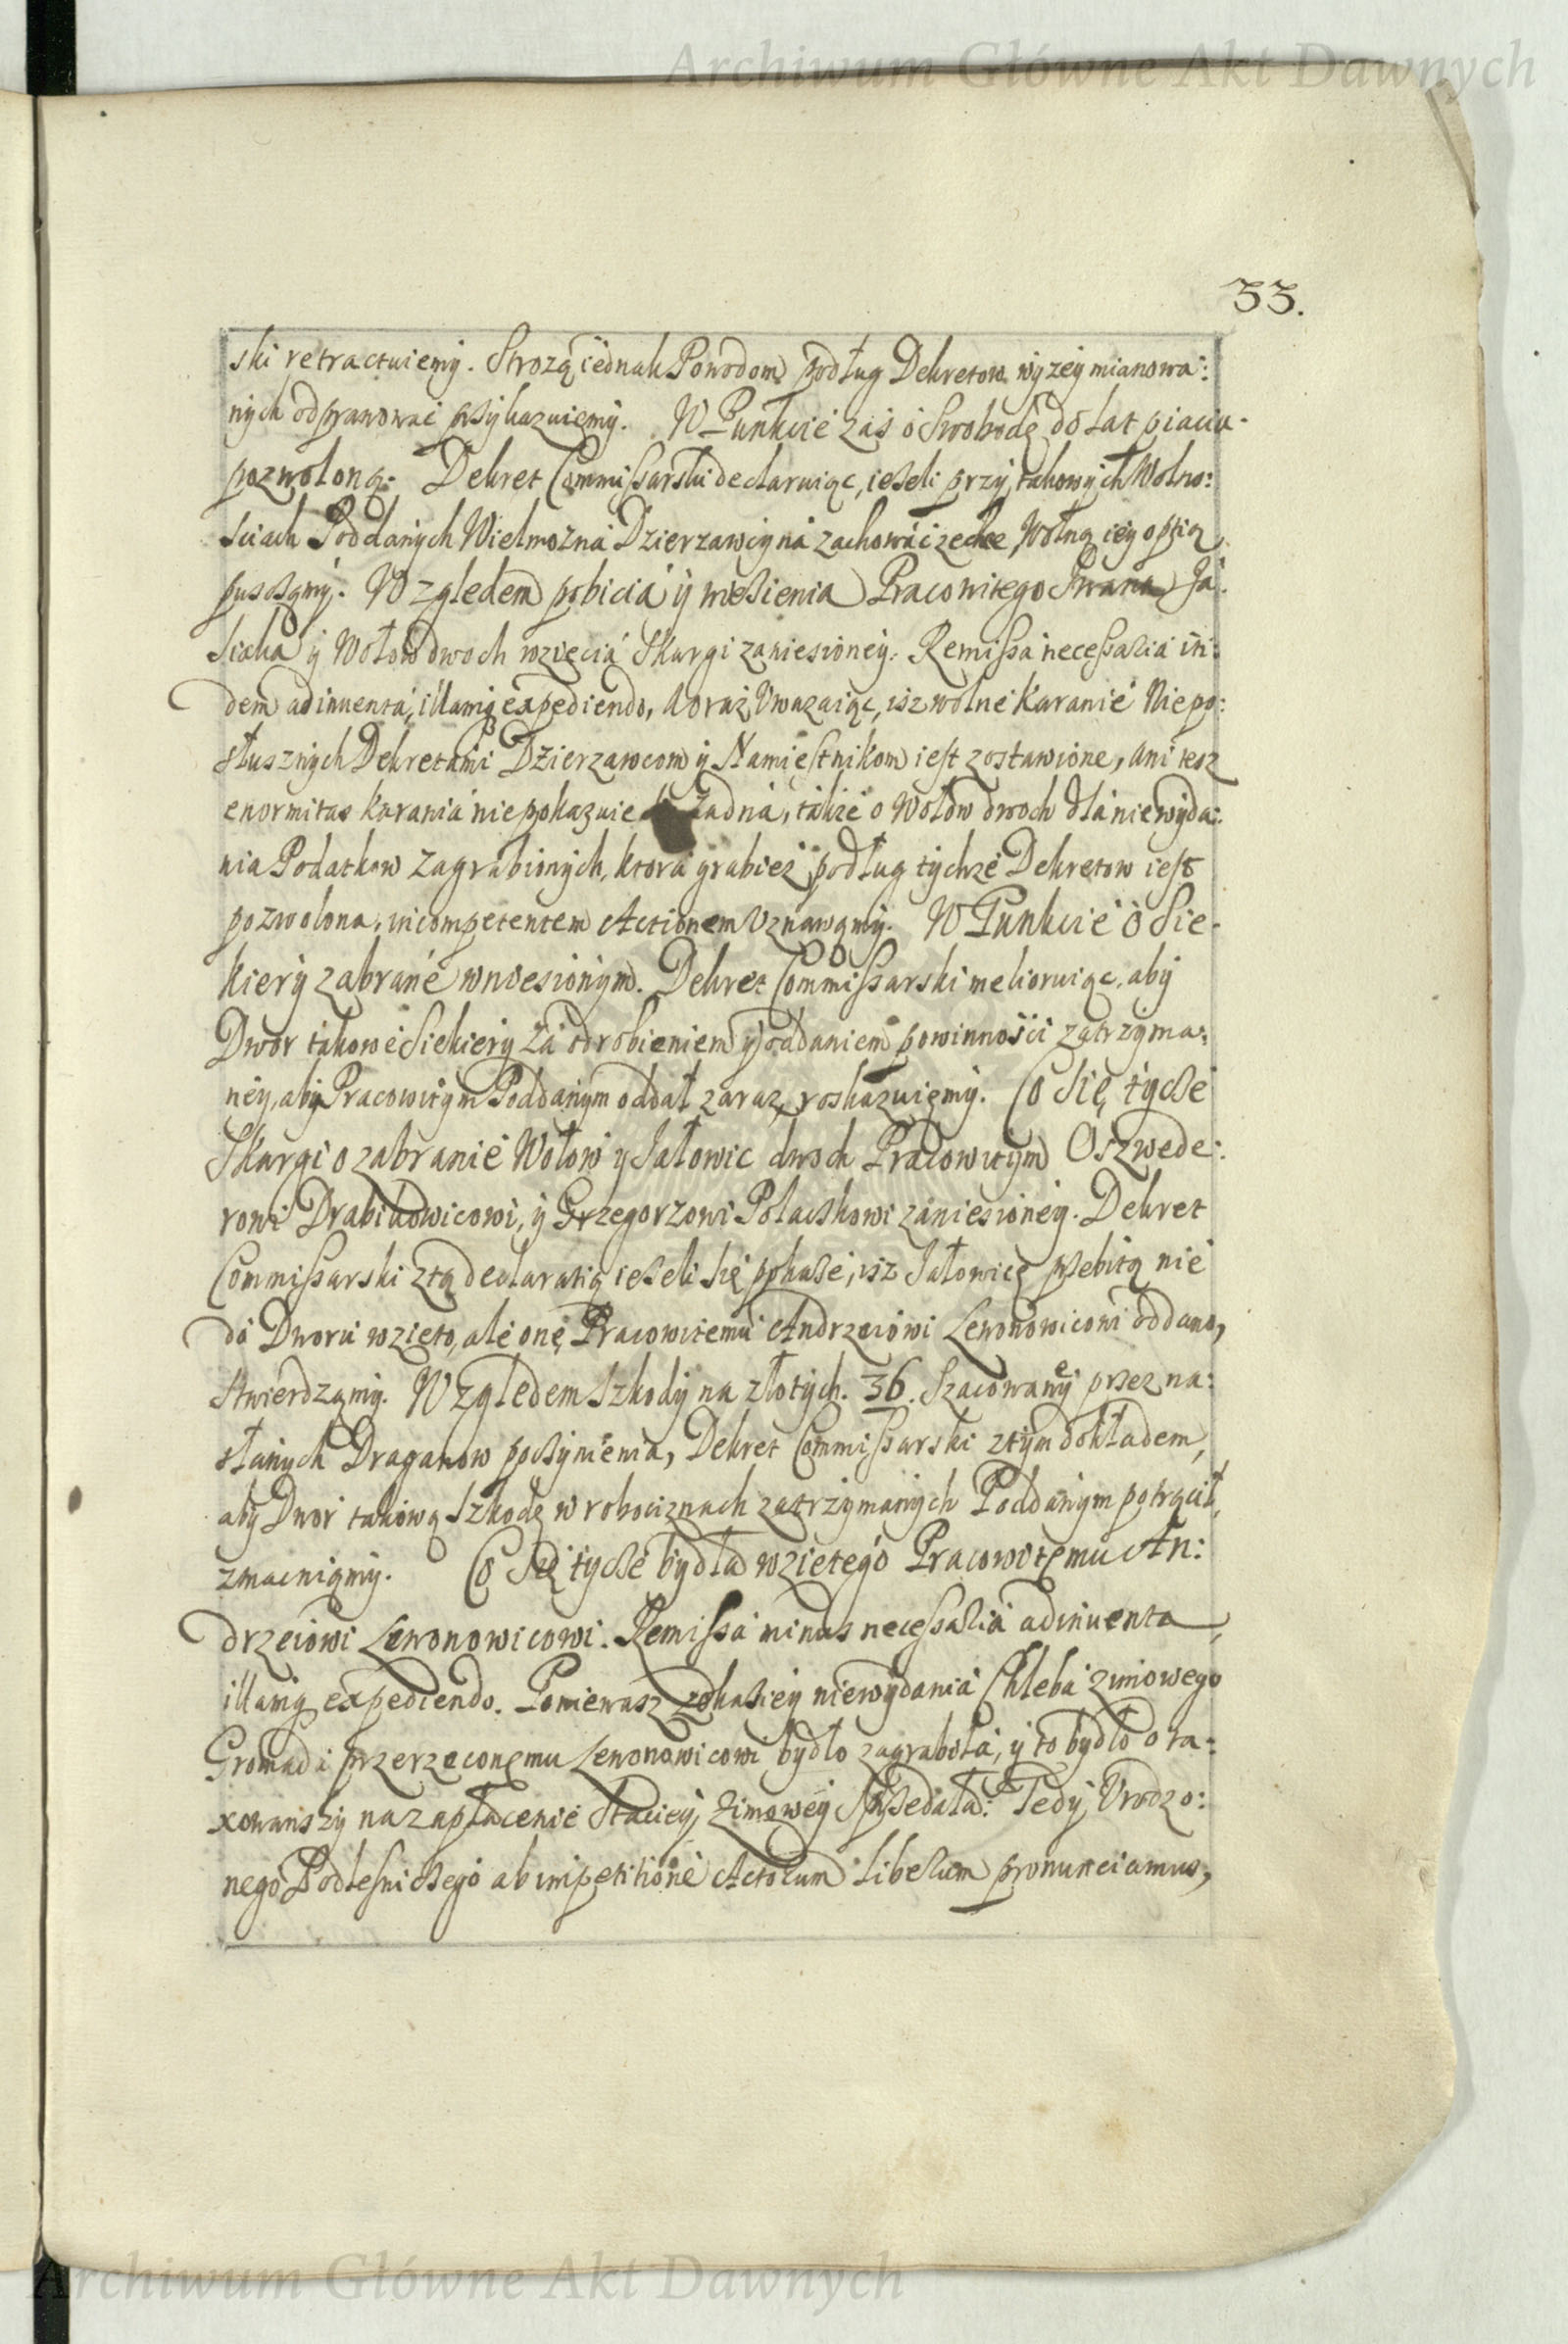 Archiwum Główne Akt Dawnych
33.
ski retractuiemy. Strozą iednak Powodom podług Dekretow wyzey mianowa:
nych odprawować przykazuiemy. W Punkcie zaś o Swobodę do lat piąciu
pozwoloną: Dekret Commissarski declaruiąc, ieżeli przy takowych Wolno:
sciach Poddanych Wielmozna Dzierzawcyna zachować zechce Wolną iey opcią
pusczamy. Względem pobicia y wiezienia Pracowitego Iwana Ja:
sicka y Wołow dwoch wzięcia Skargi zaniesioney. Remissa necessaria in:
dem adinventa, illamq expediendo, a oraz Uwazaiąc, isz wolne karanie Niepo:
słusznych Dekretami Dzierzawcom y Namiestnikom iest zostawione, ani tesz
enormitas karania nie pokazuie żadna, także o Wołow dwoch dla niewyda:
nia Podatkow zagrabionych, ktora grabiez podług tychże Dekretow iest
pozwolona, incompetentem Actionem Uznawamy. W Punkcie o Sie:
kiery zabrane wniesionym. Dekret Commissarski melioruiąc, aby
Dwor takowe Siekiery za odrobieniem y oddaniem powinności zatrzyma:
ney, aby Pracowitym Poddanym oddał zaraz, roskazuiemy. Co się tycze
Skargi o zabranie Wołow y Jałowic dwoch Pracowitym Oszwede:
rowi Drabikowicowi, y Grzegorzowi Polaczkowi zaniesioney. Dekret
Commissarski ztą declaratią ieżeli się pokaże, isz Jałowicę przebitą nie
do Dworu wzieto, ale onę Pracowitemu Andrzeiowi Lewonowicowi oddano,
stwierdzamy. Względem szkody na złotych. 36. Szacowaney przez na:
słanych Draganow poczynienia, Dekret Commissarski ztym dokładem,
aby Dwor takową szkodę w robociznach zatrzymanych Poddanym potrącił,
zmacniamy. Co Się tycze bydła wzietego Pracowitemu An:
drzeiowi Lewonowicowi. Remissa minus necessaria adinventa,
illamq expediendo. Poniewasz zokaziey niewydania Chleba zimowego
Gromada przerzeconemu Lewonowicowi bydło zagrabiła, y to bydło ota:
xowawszy na zapłacenie Staciey zimowey Sprzedała: Tedy Urodzo:
nego Podlesniczego ab impetitione Actorum liberum pronunciamus,
Archiwum Główne Akt Dawnych